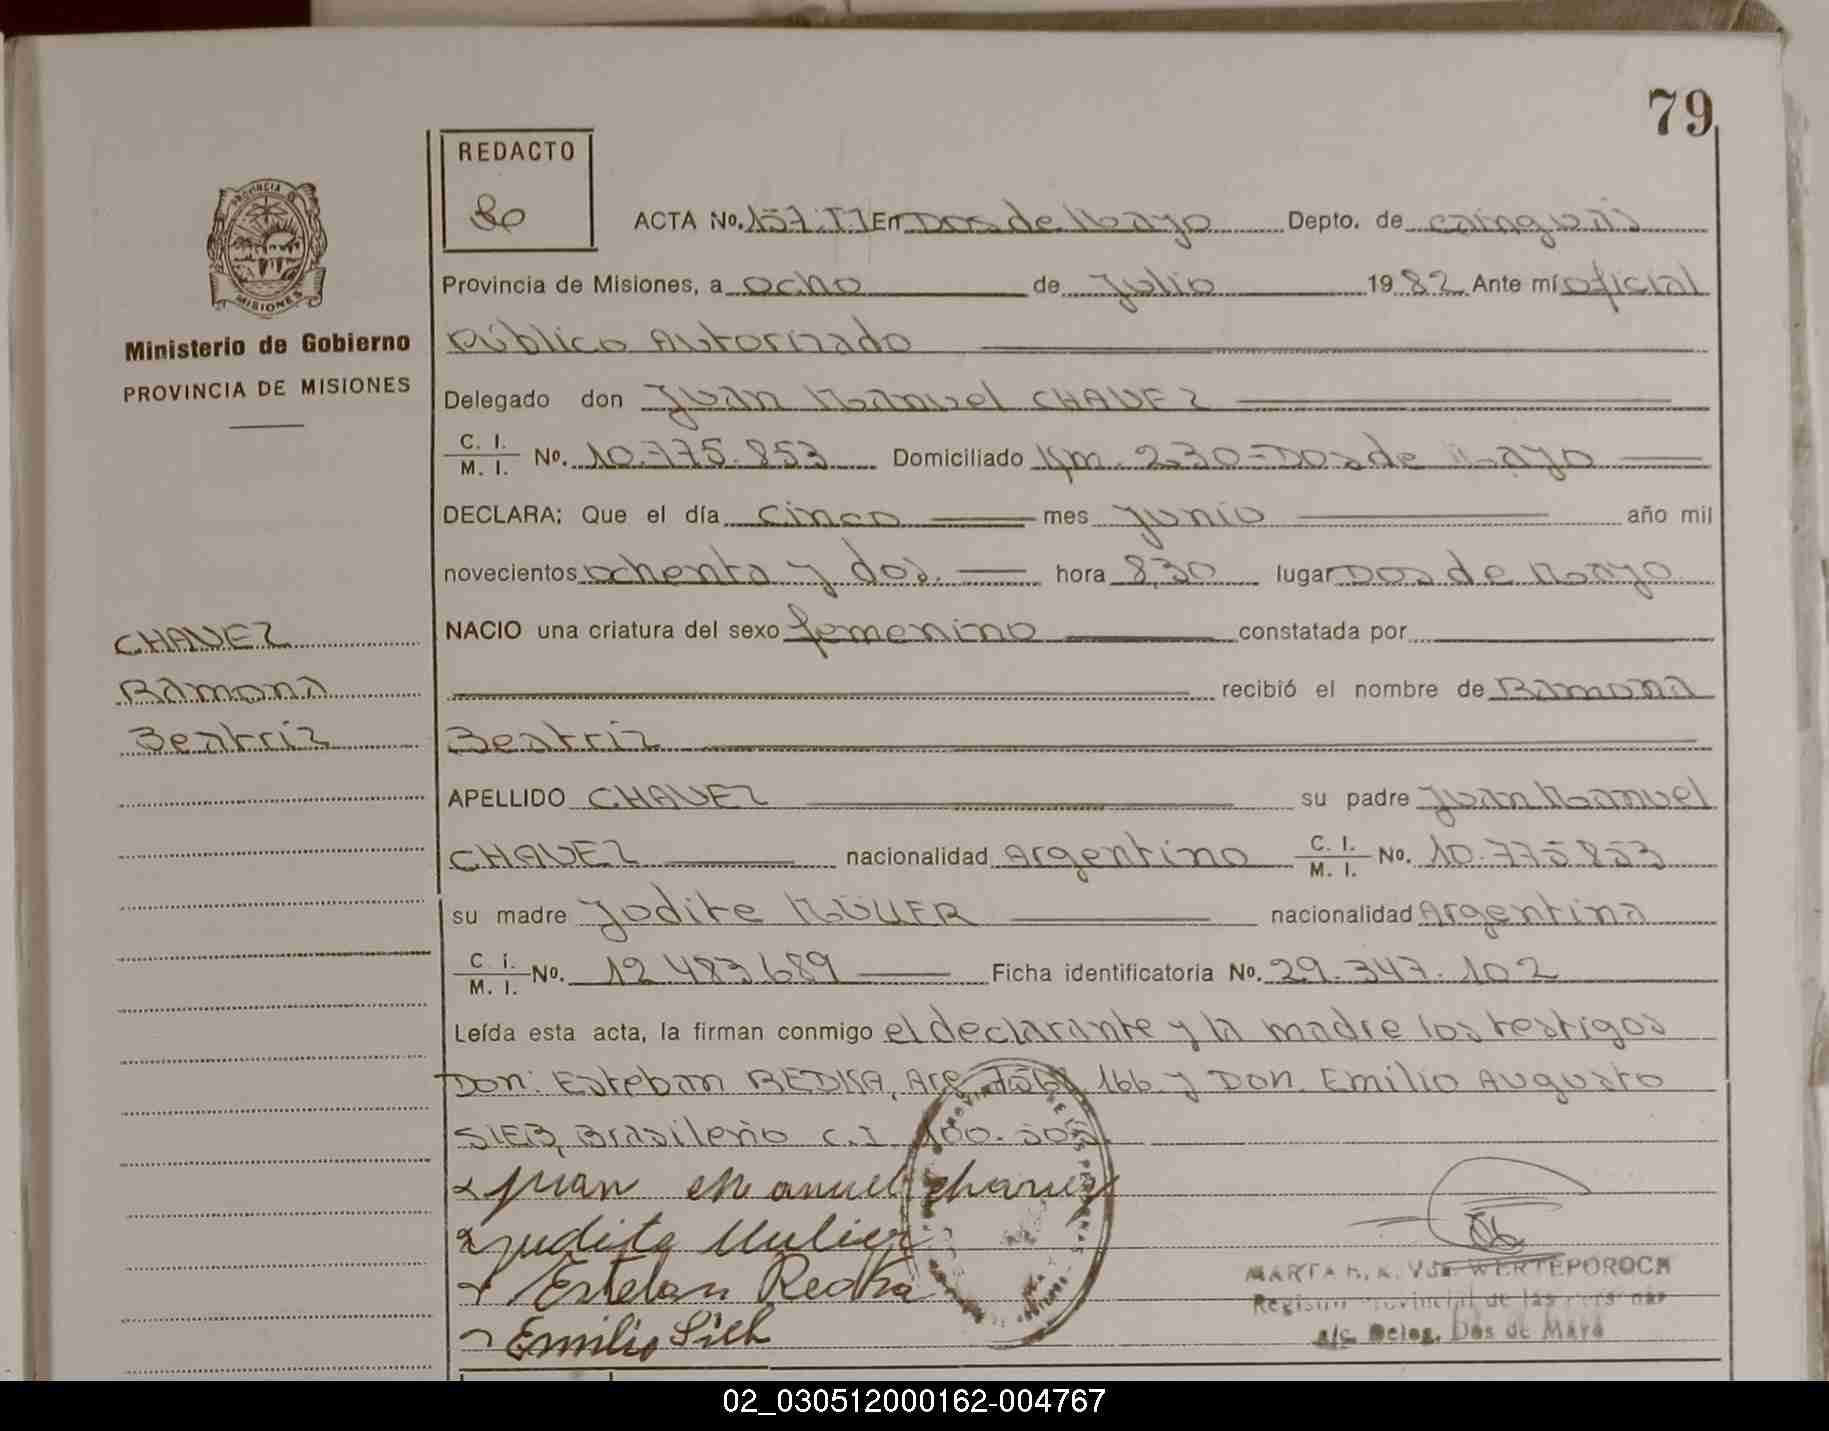 79
REDACTO
ACTA No. 157. TI En Dos de Mayo Depto. de Cainguás
Provincia de Misiones, a ocho de Julio 1982 Ante mí oficial
Público Autorizado
Delegado don Juan Manuel CHAVEZ
C. I. / M. I. No. 10.775.853 Domiciliado Km. 230-Dos de Mayo
DECLARA: Que el día cinco mes Junio año mil
novecientos ochenta y dos. hora 8,30 lugar Dos de Mayo
NACIO una criatura del sexo femenino constatada por
recibió el nombre de Ramona
Beatriz
APELLIDO CHAVEZ su padre Juan Manuel
CHAVEZ nacionalidad Argentino C. I. / M. I. No. 10.775.853
su madre Judite MÜLLER nacionalidad Argentina
C. I. / M. I. No. 12.483.689 Ficha identificatoria No. 29.347.102
Leída esta acta, la firman conmigo el declarante y la madre los testigos
Don: Esteban REDKA, Arg. 166 y Don. Emilio Augusto
SIEB, Brasileño C.I. 100.505
Juan Manuel Chavez
Judita Muller
Esteban Redka
Emilio Sieb
MARTA WERTEPOROCH
Registro Provincial de las Personas
a/c Deleg. Dos de Mayo
PROVINCIA
MISIONES
Ministerio de Gobierno
PROVINCIA DE MISIONES
CHAVEZ
Ramona
Beatriz
02_030512000162-004767